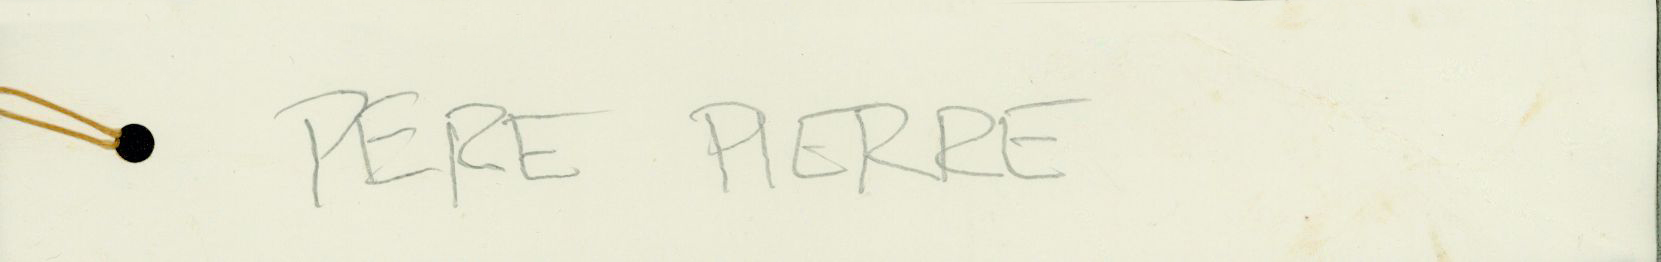 PERE PIERRE